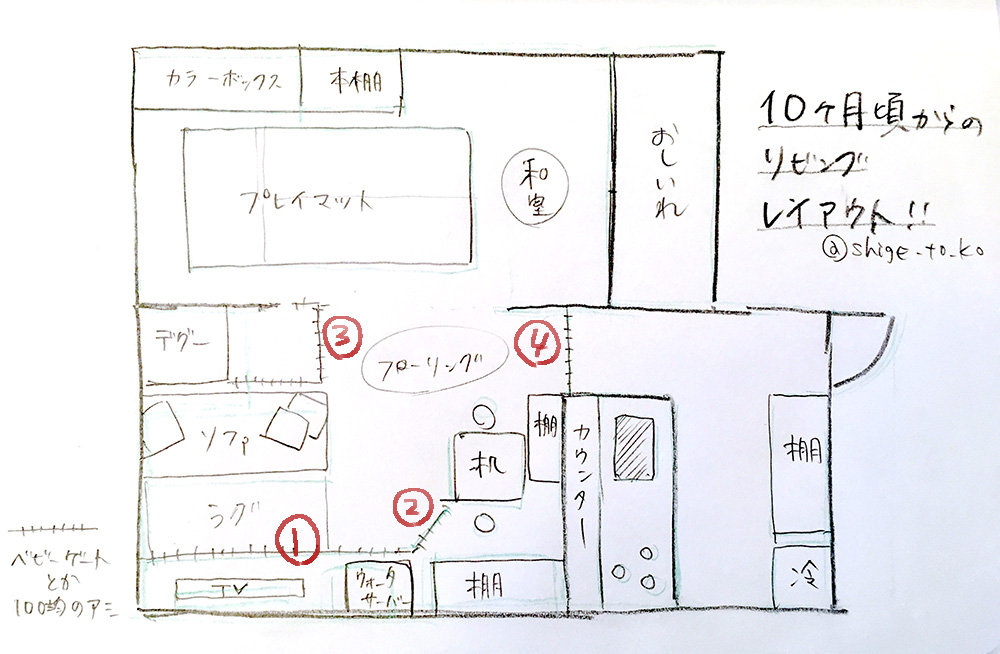 カラーボックス
本棚
10ヶ月頃からの
リビング
レイアウト!!
@shige_to_ko
おしいれ
和室
プレイマット
デグー
③
フローリング
④
ソファ
棚
カウンター
机
棚
ラグ
②
①
ベビーゲート
とか
100均のアミ
TV
ウォータ
サーバー
棚
冷